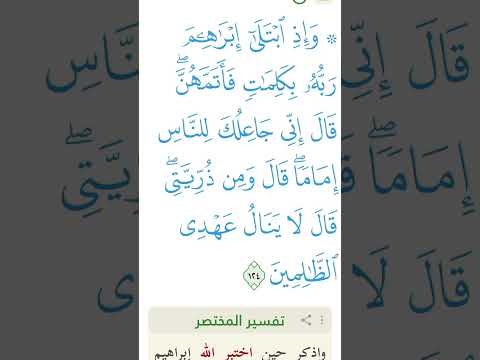 ۞ وَإِذِ ٱبۡتَلَىٰٓ إِبۡرَٰهِـۧمَ
رَبُّهُۥ بِكَلِمَٰتٖ فَأَتَمَّهُنَّۖ
قَالَ إِنِّي جَاعِلُكَ لِلنَّاسِ
إِمَامٗاۖ قَالَ وَمِن ذُرِّيَّتِيۖ
قَالَ لَا يَنَالُ عَهۡدِي
ٱلظَّٰلِمِينَ ١٢٤
تفسير المختصر
واذكر حين اختبر الله إبراهيم